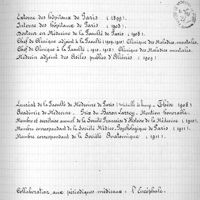 Externe des hôpitaux de Paris (1899).
Interne des hôpitaux de Paris (1903).
Docteur en Médecine de la Faculté de Paris (1908).
Chef de Clinique adjoint à la Faculté (1909, 1910) Clinique des Maladies mentales.
Chef de Clinique à la Faculté (1911, 1912) Clinique des Maladies mentales.
Médecin adjoint des Asiles publics d'Aliénés (1909).
Lauréat de la Faculté de Médecine de Paris (Médaille de bronze), Thèse 1908
Académie de Médecine. Prix du Baron Larrey. Mention honorable.
Membre et secrétaire annuel de la Société Française d'Histoire de la Médecine (1911).
Membre correspondant de la Société Médico-Psychologique de Paris (1911).
Membre correspondant de la Société Anatomique (1911).
Collaboration aux périodiques médicaux : l'Encéphale.